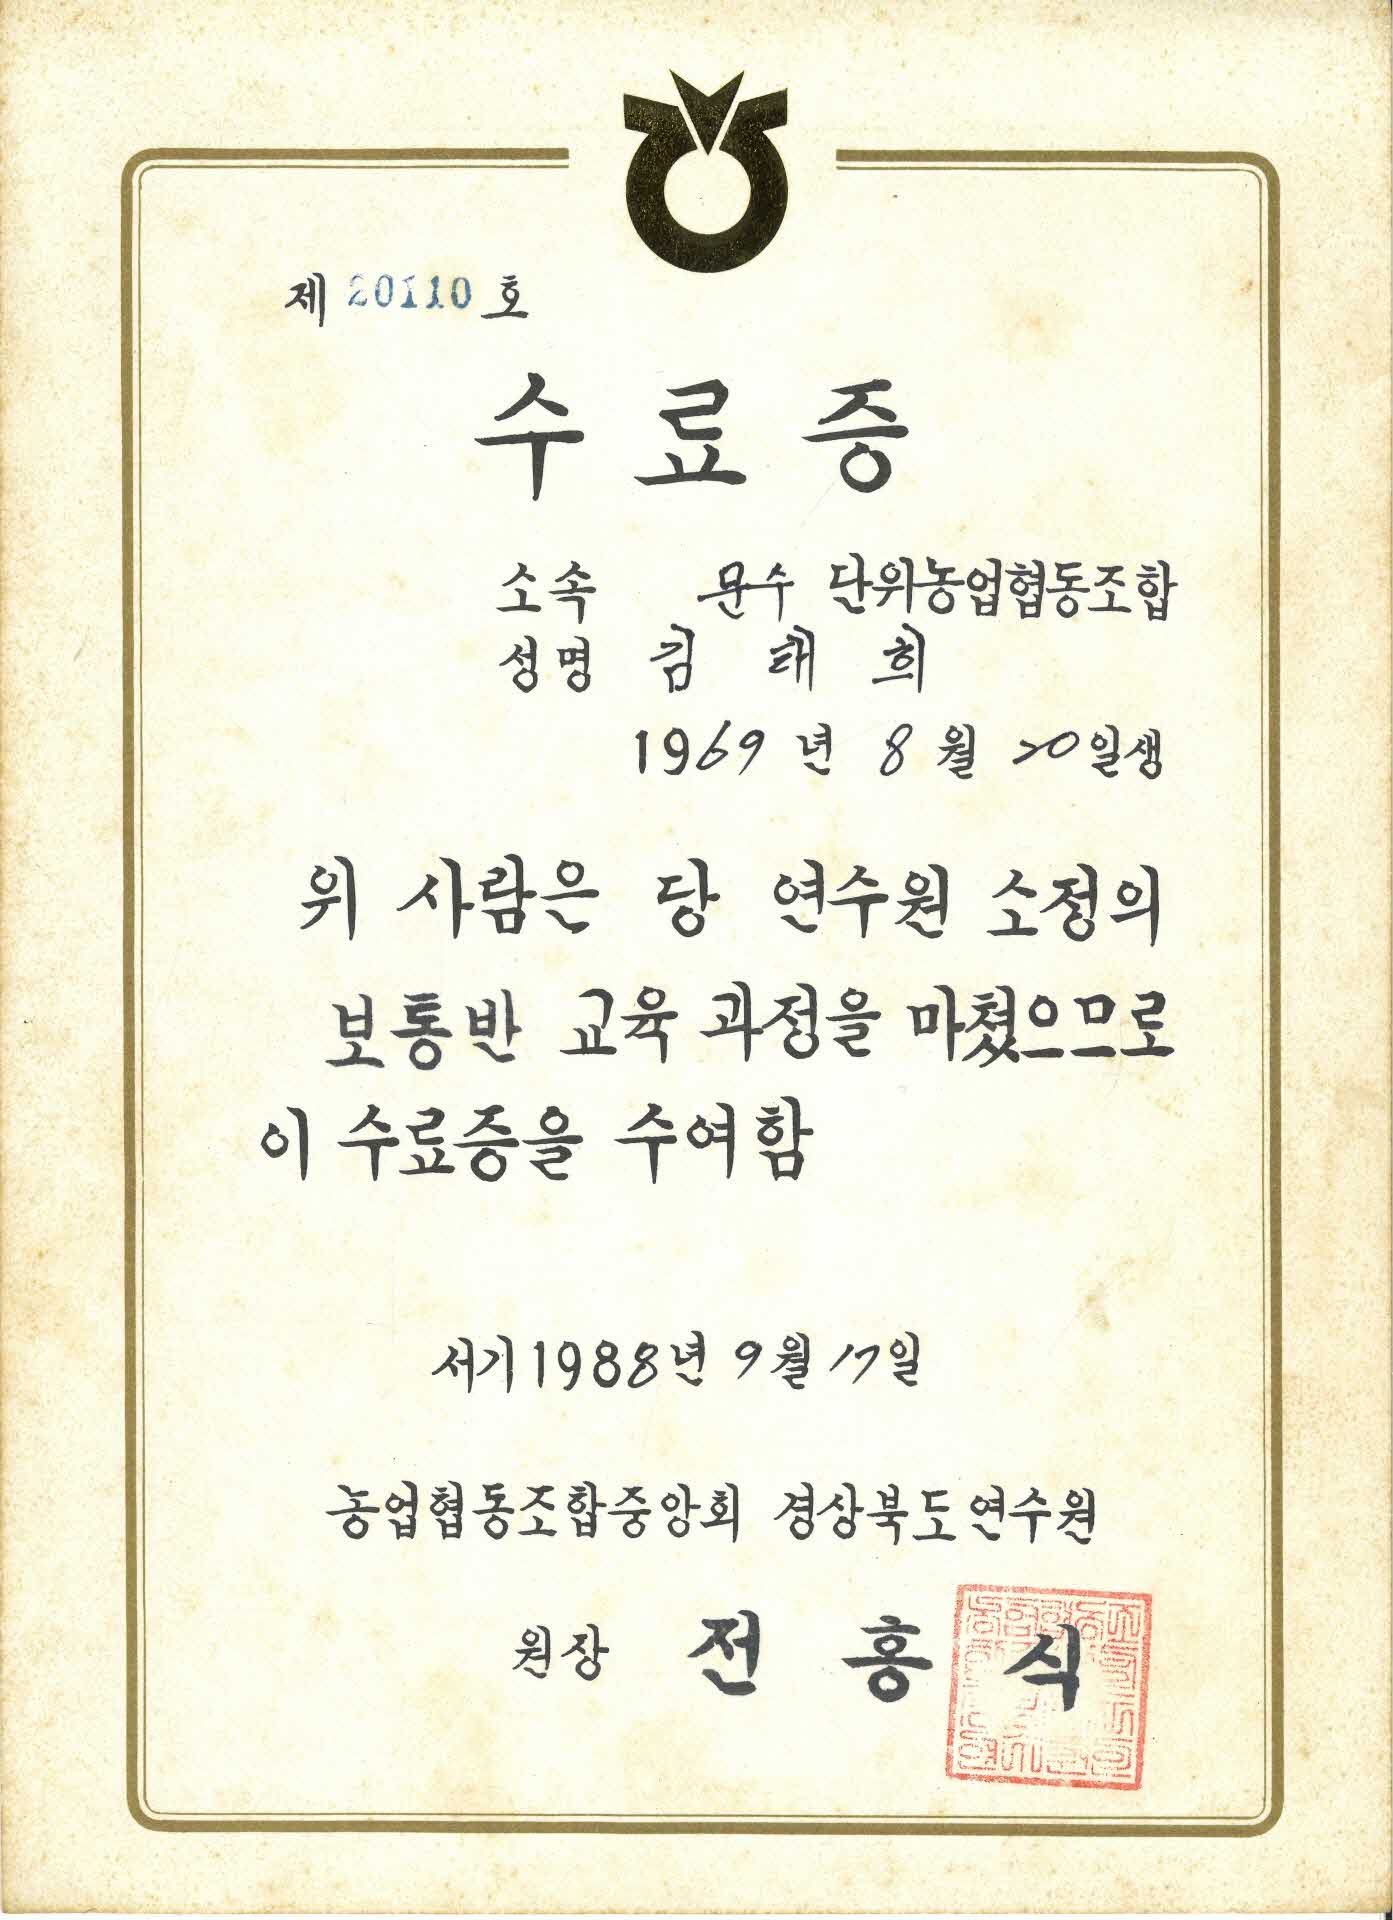 제 20110 호
수료증
소속 문수 단위농업협동조합
성명 김 태 희
1969 년 8 월 20일생
위 사람은 당 연수원 소정의
보통반 교육 과정을 마쳤으므로
이 수료증을 수여함
서기 1988년 9월 17일
농업협동조합중앙회 경상북도연수원
원장 전 홍 식